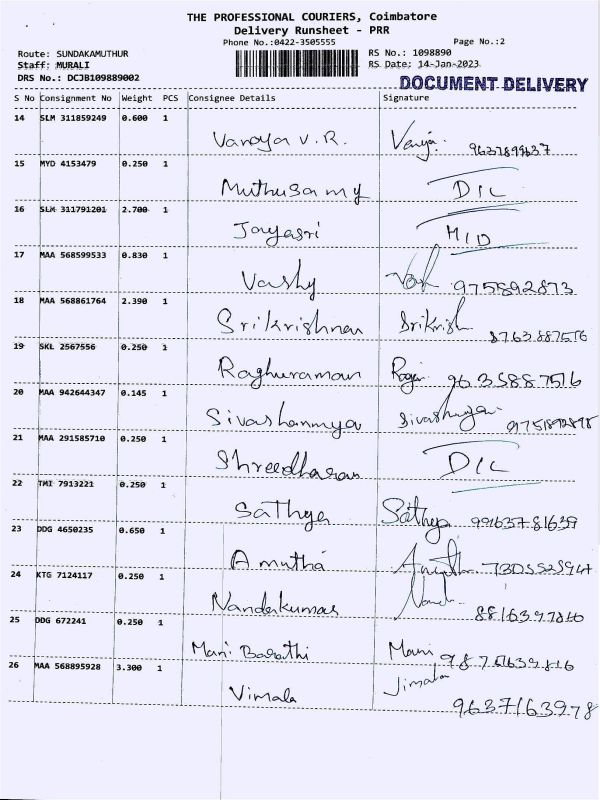 THE PROFESSIONAL COURIERS, Coimbatore
Delivery Runsheet - PRR
Phone No.:0422-3505555
Page No.:2
Route: SUNDAKAMUTHUR
RS No.: 1098890
Staff: MURALI
RS Date: 14-Jan-2023
DRS No.: DCJB109889002
DOCUMENT DELIVERY
S No Consignment No Weight PCS Consignee Details Signature
14 SLM 311859249 0.600 1
Vanaja V.R. Vanja
15 MYD 4153479 0.250 1
Muthusamy D/L
16 SLM 311791201 2.700 1
Jayasri M/D
17 MAA 568599533 0.830 1
Vashy 975892873
18 MAA 568861764 2.390 1
Srikrishnan Srikrish 8763887576
19 SKL 2567556 0.250 1
Raghuraman 9635887516
20 MAA 942644347 0.145 1
21 MAA 291585710 0.250 1
Shreedharan D/L
22 TMI 7913221 0.250 1
Sathya Sathya 99163781639
23 DDG 4650235 0.650 1
Amutha
24 KTG 7124117 0.250 1
Nandakumar
25 DDG 672241 0.250 1
Mani Barathi Mani
26 MAA 568895928 3.300 1
Vimala Jimala 9637163978